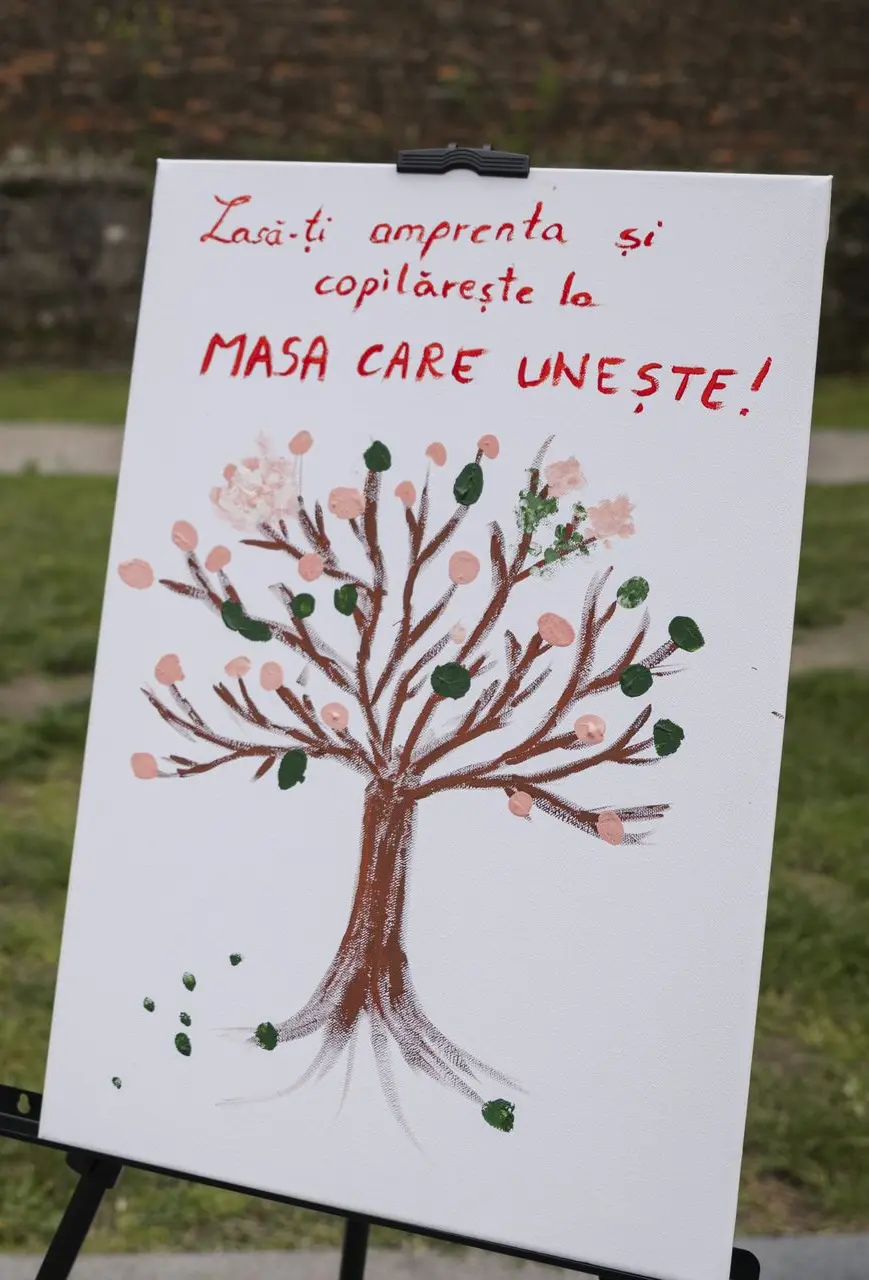 Lasă-ți amprenta și
copilărește la
MASA CARE UNEȘTE!